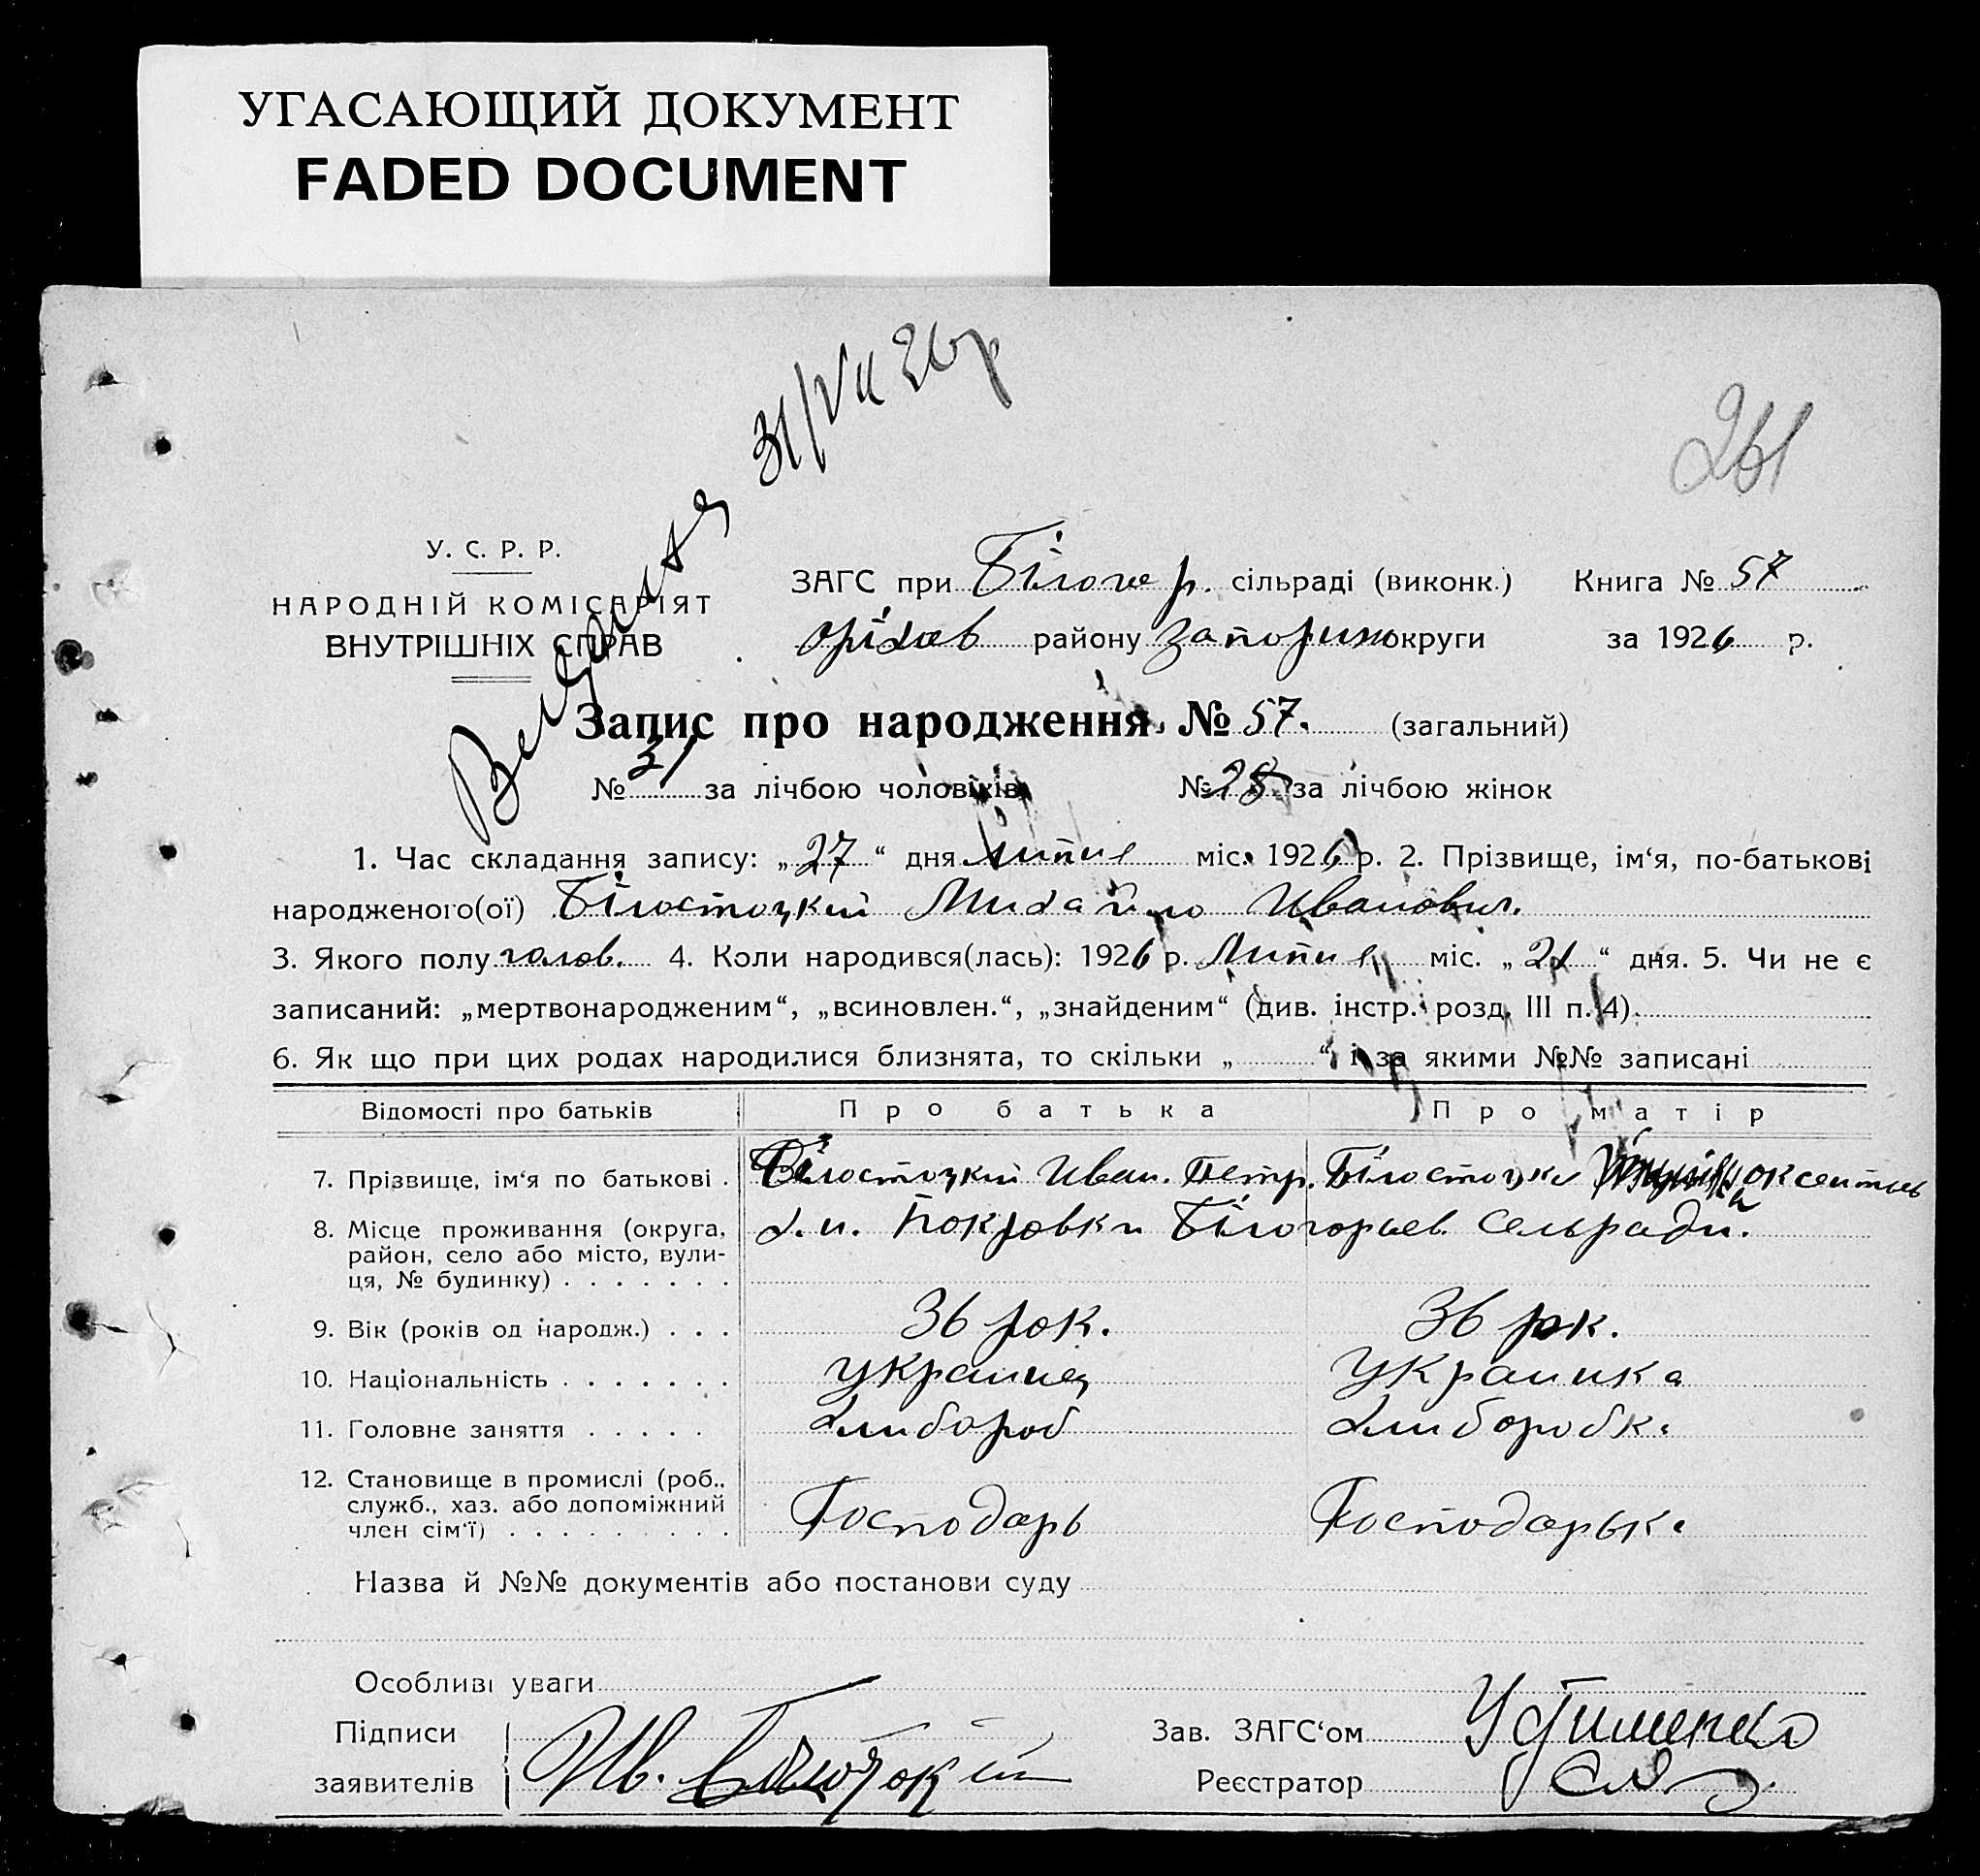 УГАСАЮЩИЙ ДОКУМЕНТ
FADED DOCUMENT
31/VII 26 р
261
У. С. Р. Р.
НАРОДНІЙ КОМІСАРІЯТ
ВНУТРІШНІХ СПРАВ
ЗАГС при Білогор. сільраді (виконк.) Книга № 57
Оріхов району Запориж округи за 1926 р.
Запис про народження № 57. (загальний)
№ 31 за лічбою чоловіків № 28 за лічбою жінок
1. Час складання запису: „27“ дня липня міс. 1926 р. 2. Прізвище, ім‘я, по-батькові
народженого(ої) Білостоцкий Михайло Иванович.
3. Якого полу чолов. 4. Коли народився(лась): 1926 р. Липня міс. „21“ дня. 5. Чи не є
записаний: „мертвонародженим“, „всиновлен.“, „знайденим“ (див. інстр. розд. III п. 4).
6. Як що при цих родах народилися близнята, то скільки „ “ і за якими №№ записані
Відомості про батьків Про батька Про матір
7. Прізвище, ім‘я по батькові . Білостоцкий Иван. Петр. Білостоцка Оксентьев
8. Місце проживання (округа, х.и. Покровки Білогорьев. Сельради.
район, село або місто, вули-
ця, № будинку) . . . . . . .
9. Вік (років од народж.) . . . 36 рок. 36 рок.
10. Національність . . . . . . . украинец украинка
11. Головне заняття . . . . . Хлибороб Хлиборобка
12. Становище в промислі (роб.,
служб., хаз. або допоміжний
член сім‘ї) . . . . . . . . . Господарь Господарька
Назва й №№ документів або постанови суду
Особливі уваги
Підписи
заявителів Ив.
Зав. ЗАГС‘ом Устименко
Реєстратор